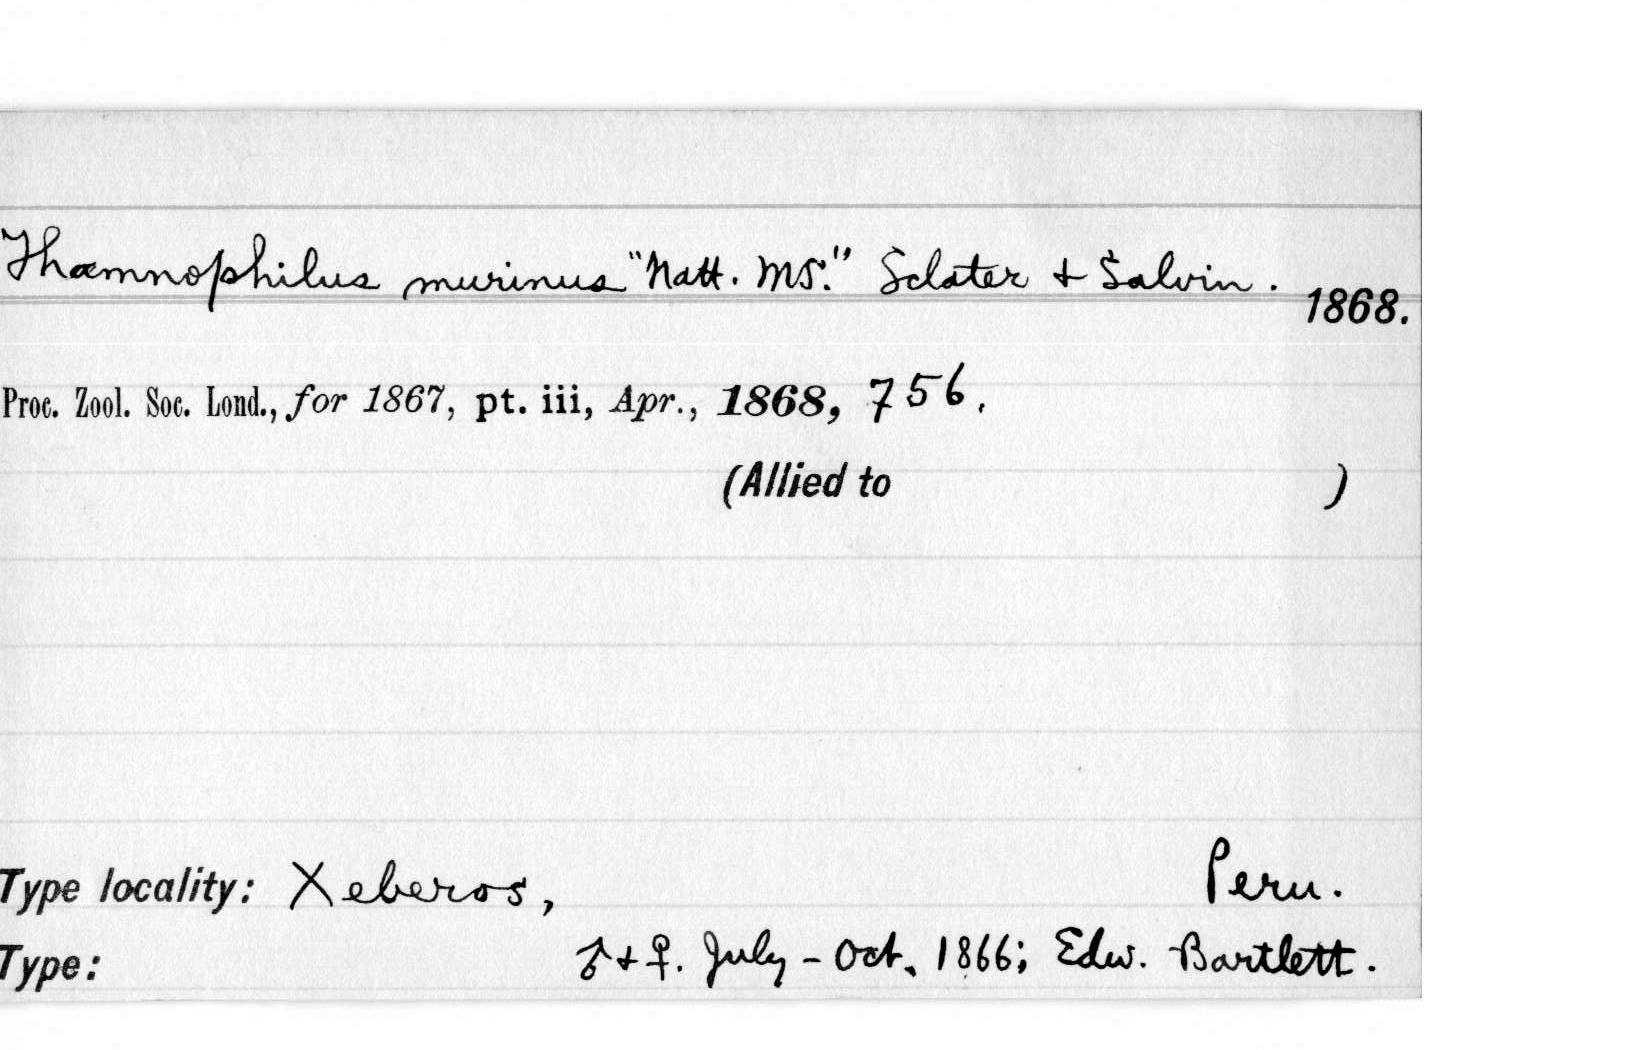 Thamnophilus murinus "Natt. MS." Sclater + Salvin.
1868.
Proc. Zool. Soc. Lond., for 1867, pt. iii, Apr., 1868, 756.
(Allied to )
Type locality: Xeberos, Peru.
Type: ♂ + ♀. July – Oct. 1866; Edw. Bartlett.